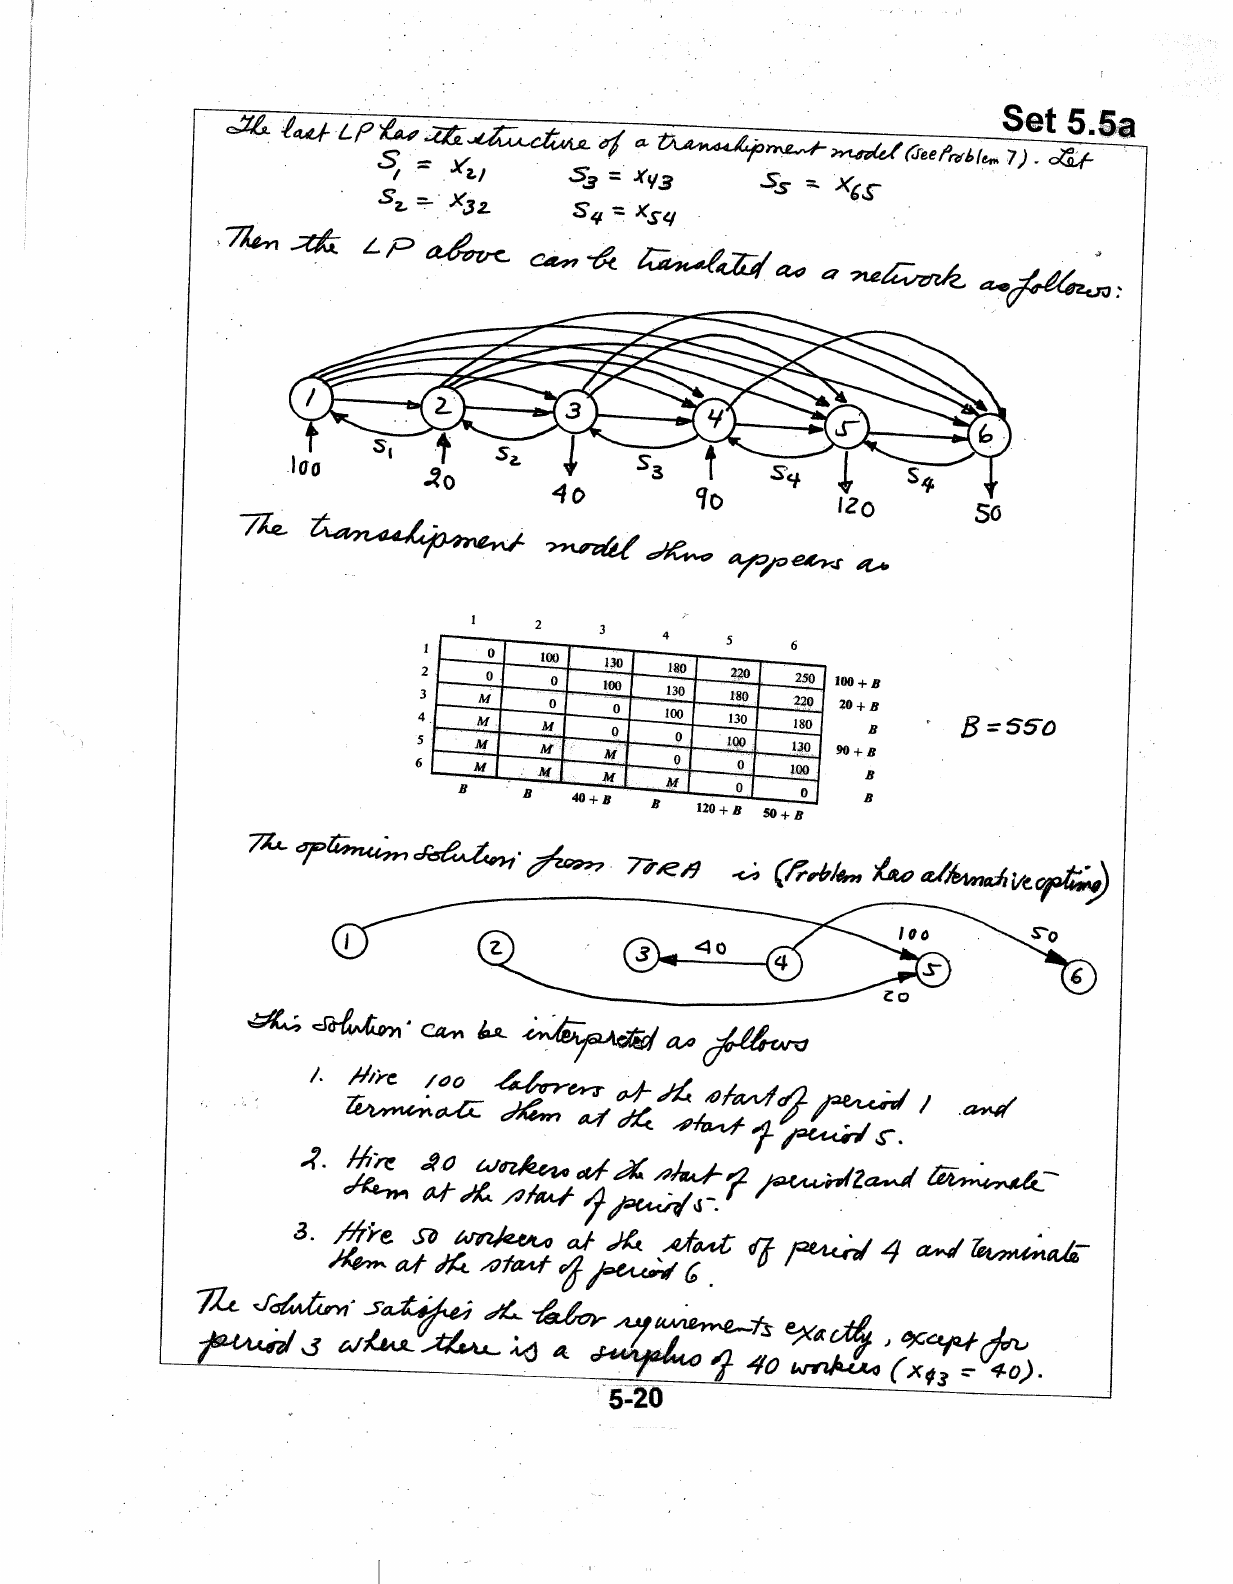 Set 5.5a
The last LP has the structure of a transshipment model (see Problem 7). Let
S1 = x21 S3 = x43 S5 = x65
S2 = x32 S4 = x54
Then the LP above can be translated as a network as follows:
1 2 3 4 5 6
S1 S2 S3 S4 S4
100 20 40 90 120 50
The transshipment model thus appears as
1 2 3 4 5 6
1 0 100 130 180 220 250 100 + B
2 0 0 100 130 180 220 20 + B
3 M 0 0 100 130 180 B
4 M M 0 0 100 130 90 + B
5 M M M 0 0 100 B
6 M M M M 0 0 B
B B 40 + B B 120 + B 50 + B
B = 550
The optimum solution from TORA is (Problem has alternative optima)
100 50
1 2 3 40 4 5 6
20
This solution can be interpreted as follows
1. Hire 100 laborers at the start of period 1 and
terminate them at the start of period 5.
2. Hire 20 workers at the start of period 2 and terminate
them at the start of period 5.
3. Hire 50 workers at the start of period 4 and terminate
them at the start of period 6.
The solution satisfies the labor requirements exactly, except for
period 3 where there is a surplus of 40 workers (x43 = 40).
5-20